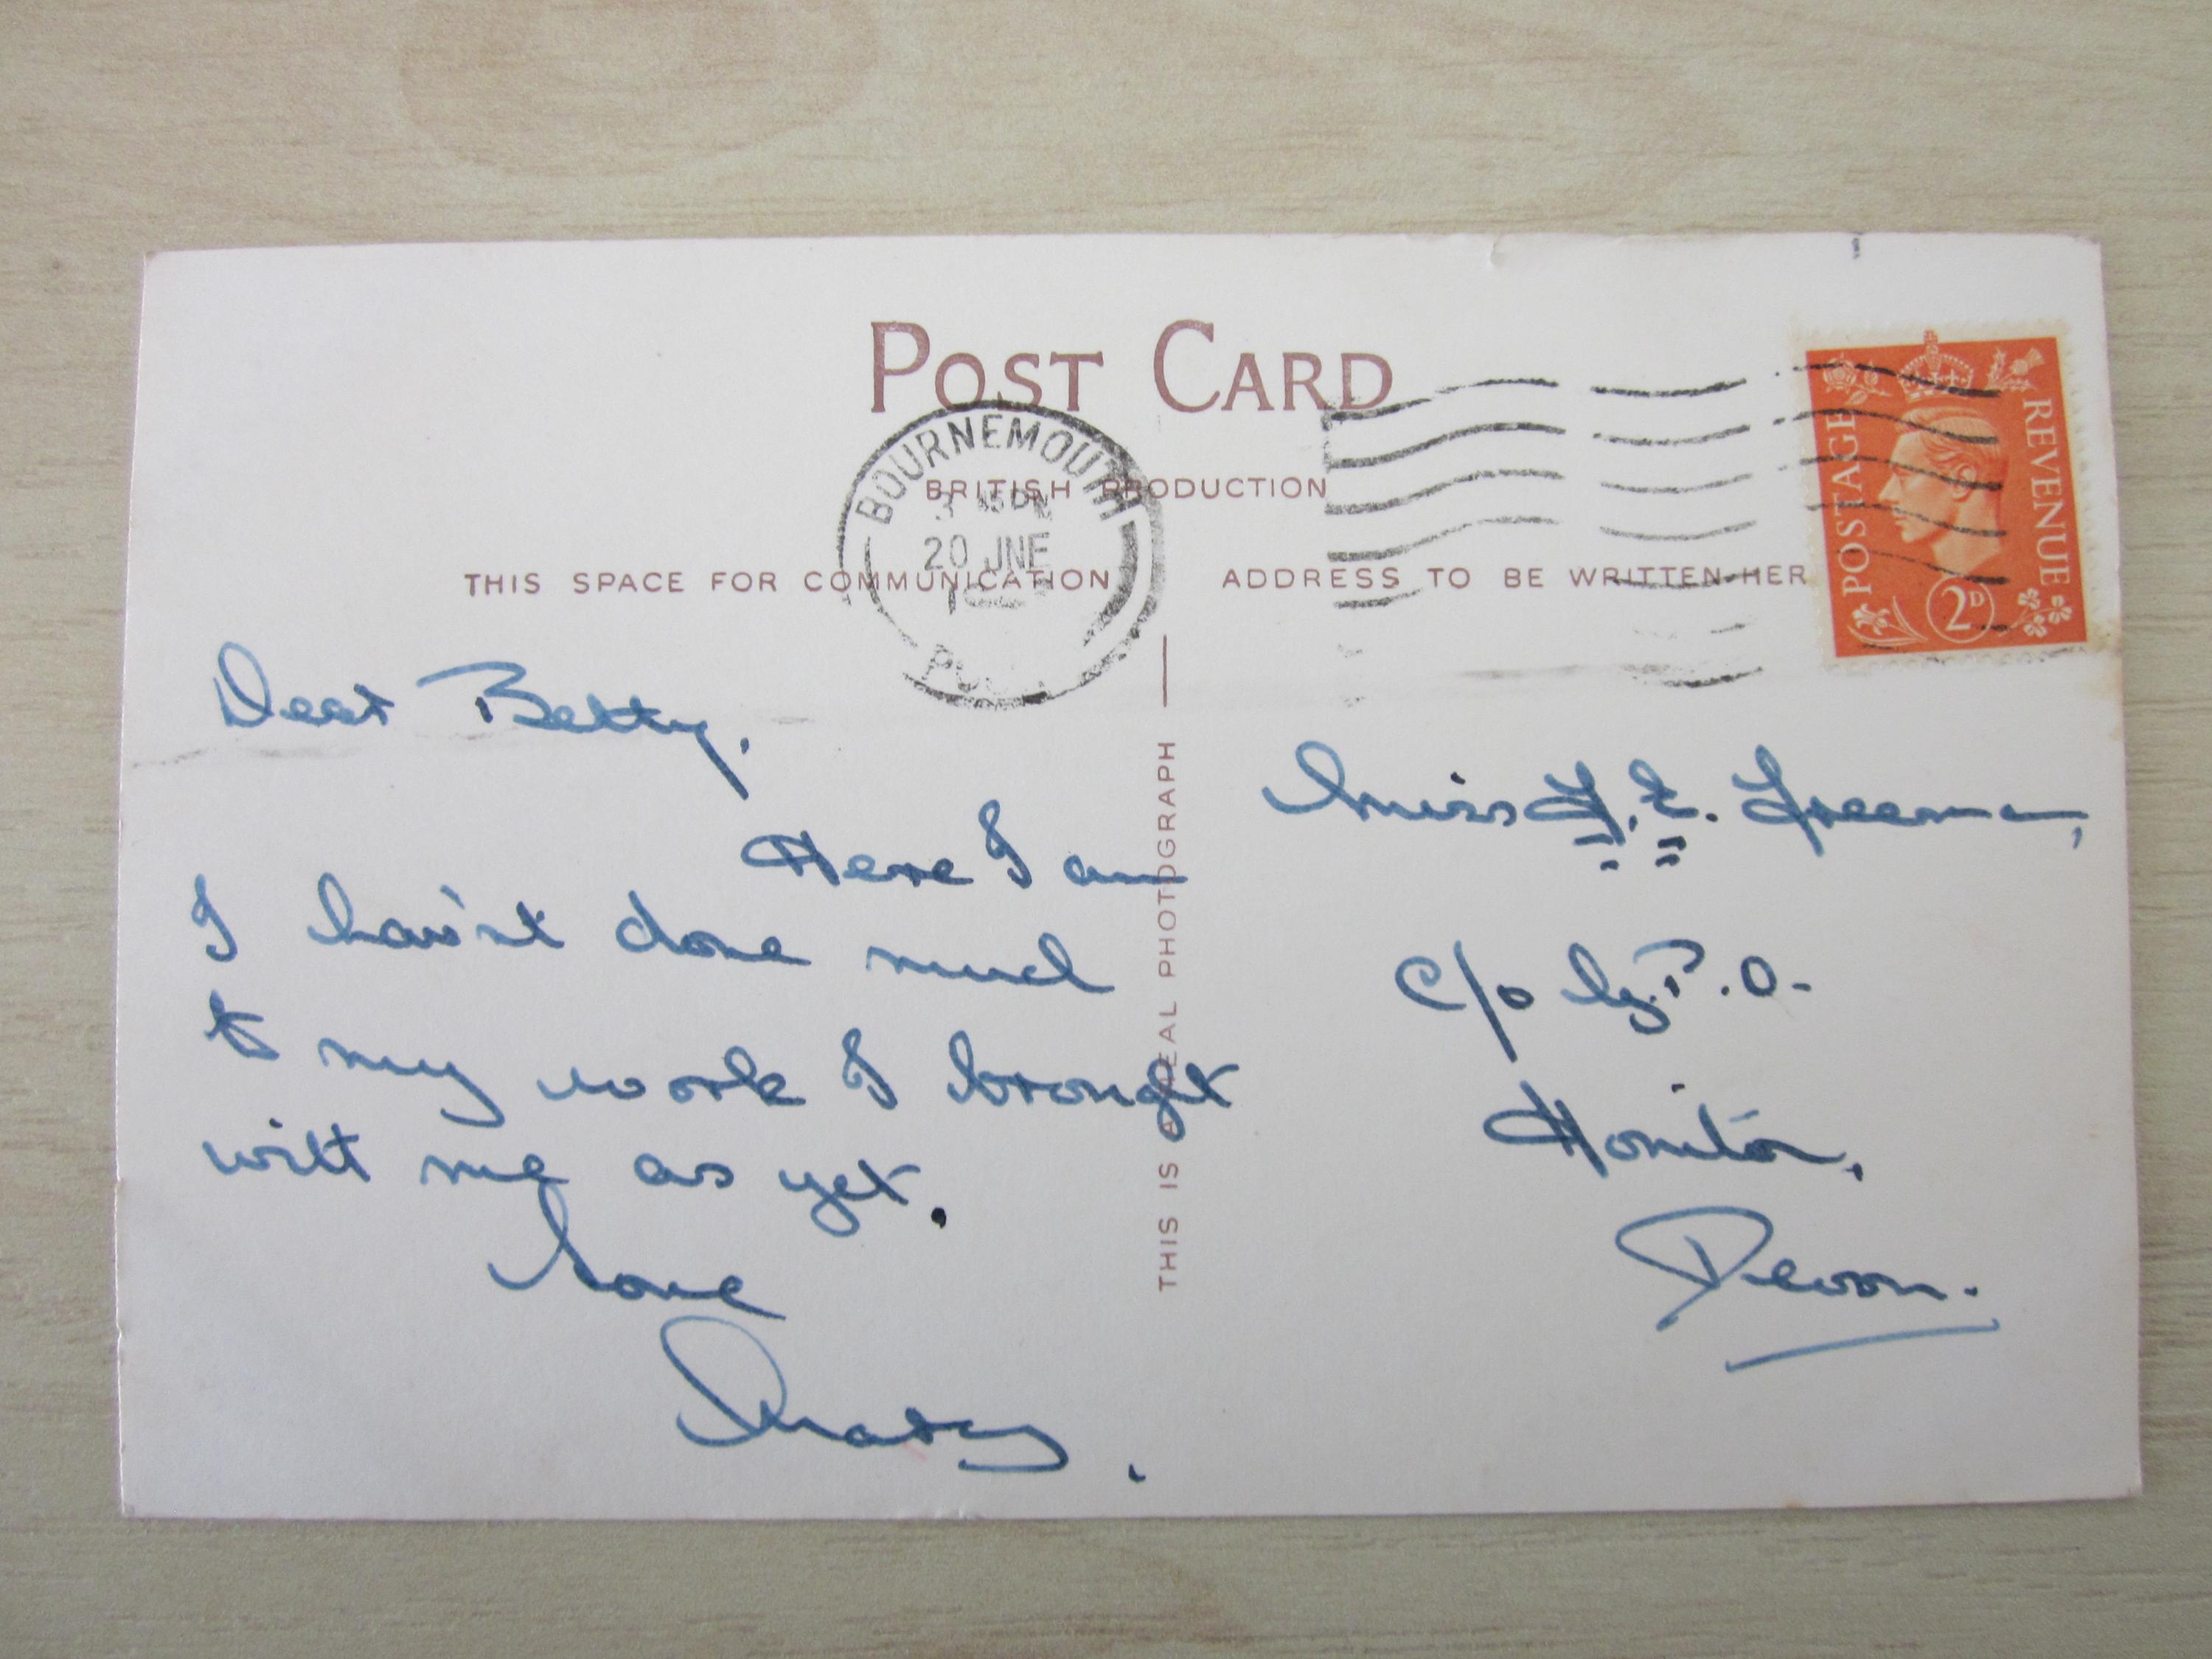 POST CARD
BRITISH PRODUCTION
THIS SPACE FOR COMMUNICATION
ADDRESS TO BE WRITTEN HER
BOURNEMOUTH
20 JNE
POSTAGE
REVENUE
2D
Dear Betty,
Here I am
I hav'nt done much
to my work I brought
with me as yet.
Love
Mary.
THIS IS A REAL PHOTOGRAPH
Miss F. E. Freeman,
C/o G.P.O.
Honiton,
Devon.